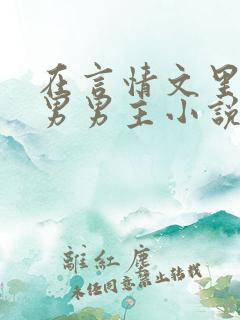 在言情文里
男男主小說
離紅塵
未经同意禁止转载